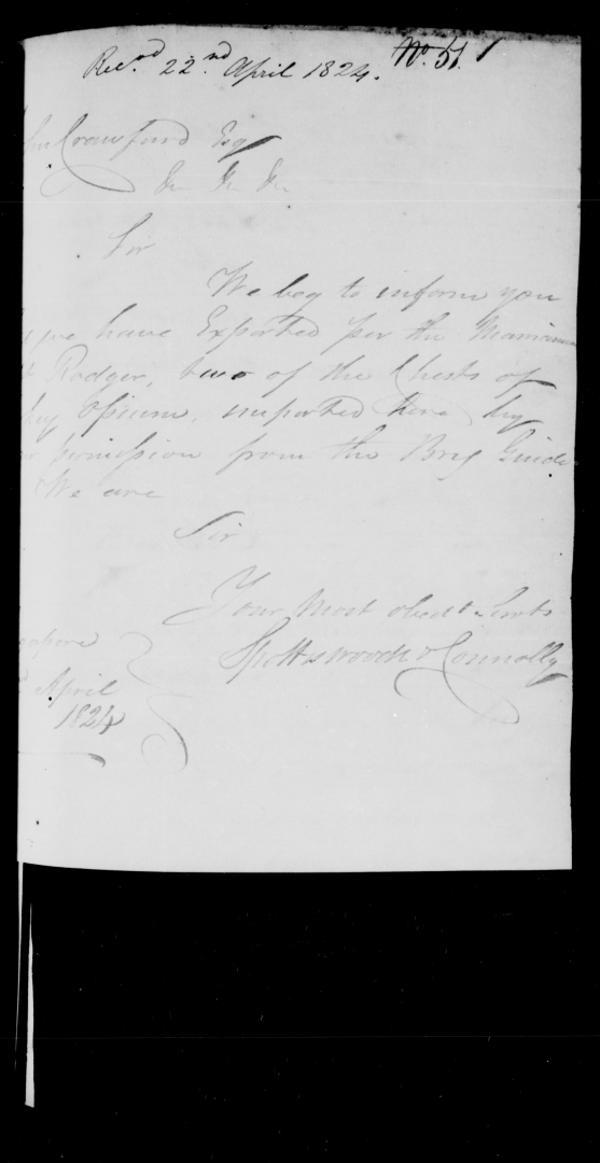 Rec.ed 22.nd April 1824. No. 51.
Crawfurd Esq
&c &c &c
Sir
We beg to inform you
we have Exported per the
Rodger, two of the Chests of
key Opium, imported here by
permission from the Brig
We are
Sir
Your Most obedt Servts
Spottiswoode & Connolly
apore
April
1824